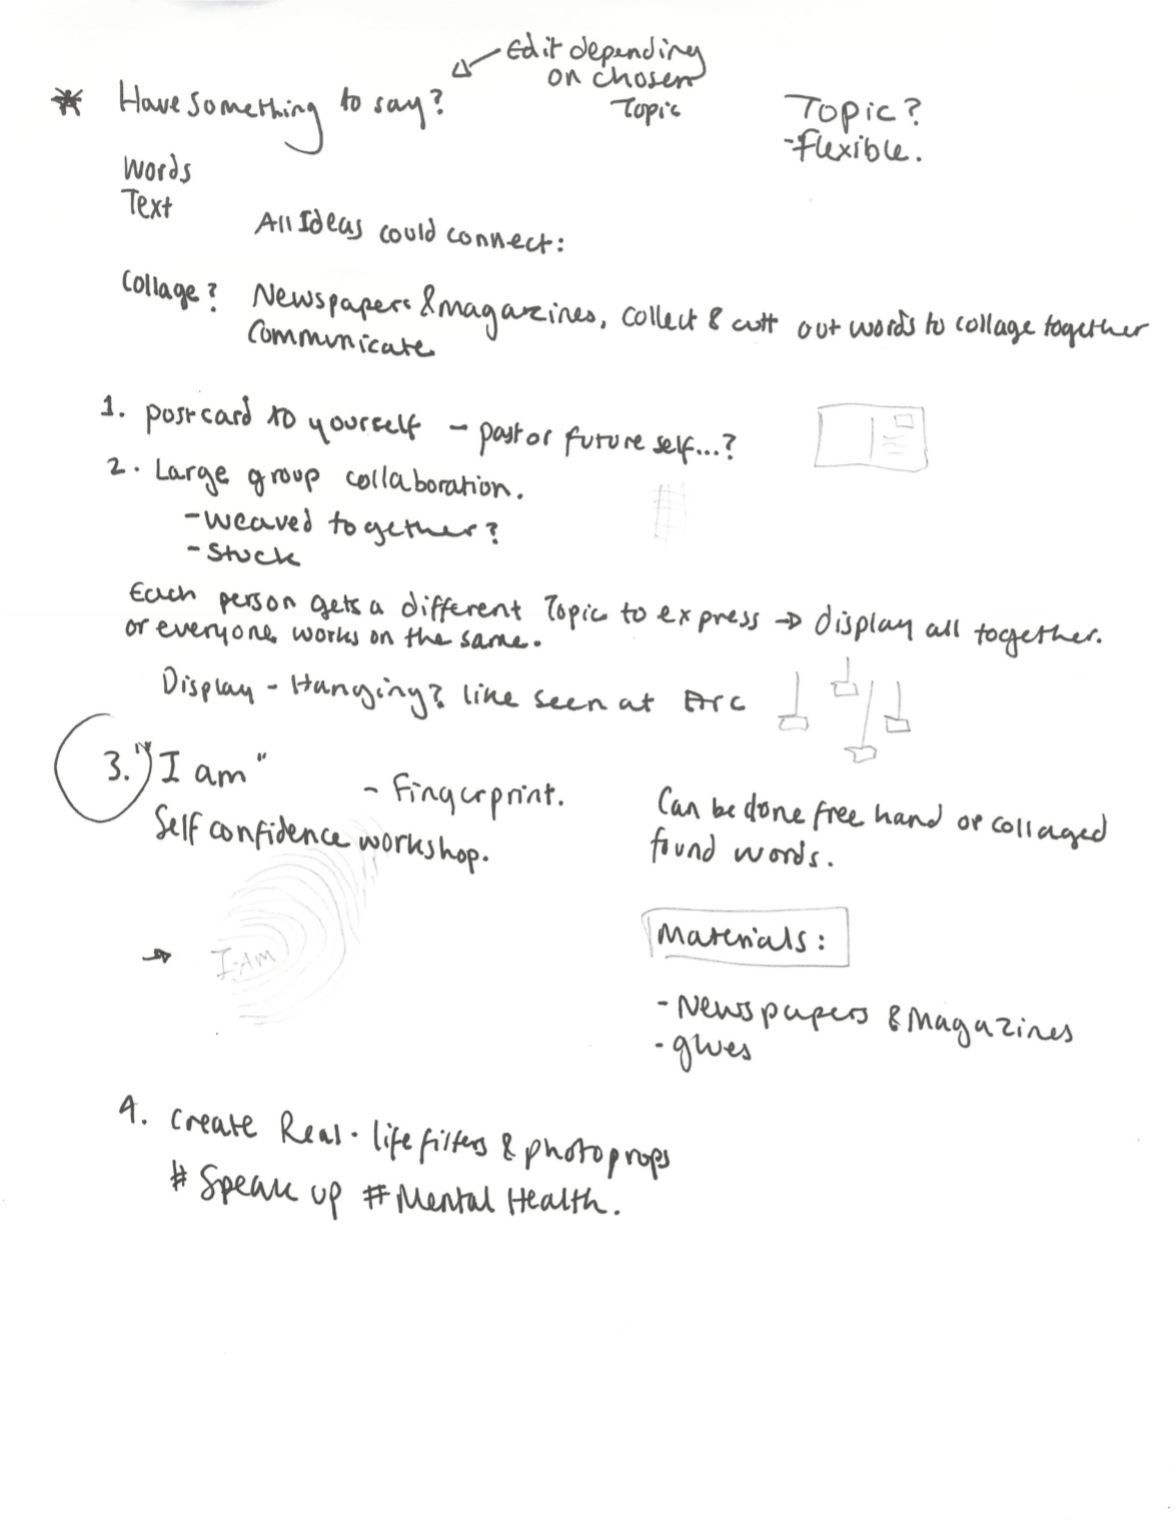 Edit depending
on chosen
Topic
* Have something to say?
Topic?
- Flexible.
Words
Text
All Ideas could connect:
Collage? Newspapers & magazines, collect & cutt out words to collage together
Communicate
1. postcard to yourself - past or future self...?
2. Large group collaboration.
- weaved together?
- Stuck
Each person gets a different Topic to express → display all together.
or everyone works on the same.
Display - Hanging? like seen at Arc
3. "I am"
- Fingerprint.
Self confidence workshop.
Can be done free hand or collaged
found words.
→ I AM
Materials:
- Newspapers & Magazines
- glues
4. Create Real-life filters & photoprops
# Speak up # Mental Health.